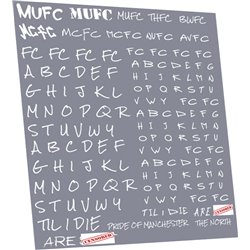 MUFC MUFC MUFC THFC BWFC
MCFC MCFC MCFC NUFC AVFC
FC FC FC FC FC FC FC FC FC
A B C D E F A B C D E F G
G H I J K L H I J K L M N
M N O P Q R O P Q R S T U
S T U V W Y V W Y FC FC FC
A B C D E F A B C D E F G
G H I J K L H I J K L M N
M N O P Q R O P Q R S T U
S T U V W Y V W Y FC FC FC
TIL I DIE TIL I DIE ARE CENSORED
PRIDE OF MANCHESTER THE NORTH
ARE CENSORED